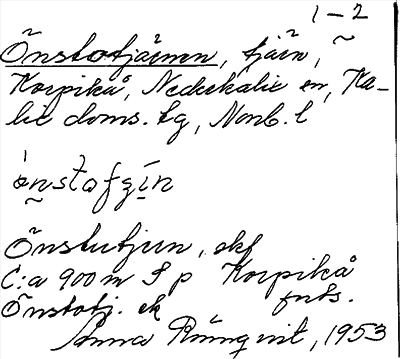 1-2
Önstotjärnen, tjärn,
Korpikå, Nederkalix sn, Ka-
lix doms. tg, Norrb. l
Önstutjern, ek
C:a 900 m S p Korpikå
Önstotj. ek
Anna Rönnqvist, 1953